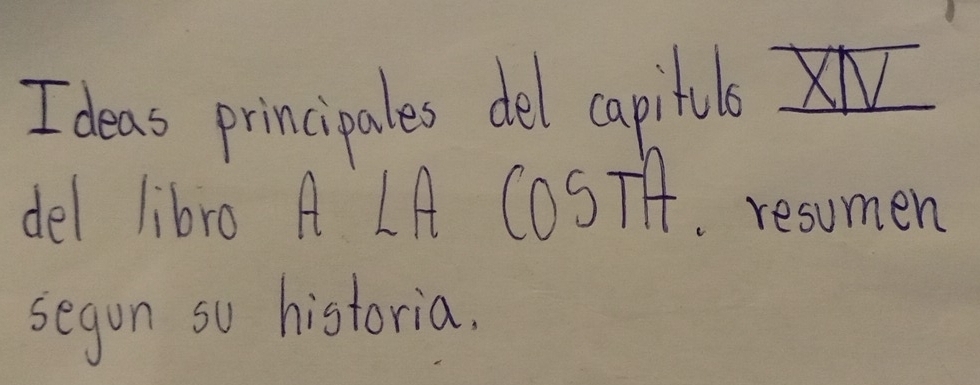 Ideas principales del capitulo XIV
del libro A LA COSTA. resumen
segun su historia.